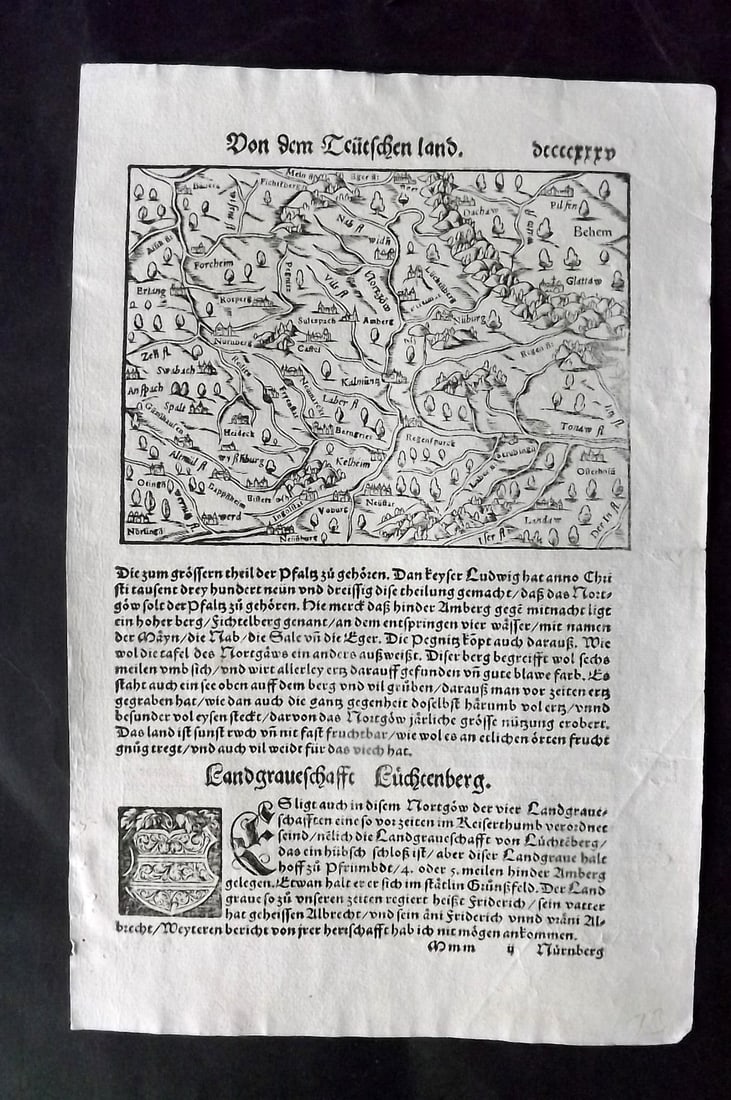 Von dem Teütschen land. dccccxxxv
Mein fl
Eger fl
Fichtelberg
Eger
Pilsen
Dachaw
Behem
Nab fl
widn
Forcheim
Pegnitz
Vils fl
Nortgöw
Glattaw
Erlang
Sultzpach
Amberg
Nüburg
Nurnberg
Castel
Regen fl
Zenn fl
Swabach
Kalmüntz
Anspach
Spalt
Laber fl
Tonaw fl
Heideck
Berngries
Regenspurck
Straubingen
Altmül fl
Kelheim
Osterhofē
Oting
Bappēheim
Neüstat
werd
Ingolstat
Voburg
Landaw
Nörlingē
Neüburg
Iser fl
Der In fl
Die zum grössern theil der Pfaltz zů gehören. Dan keyser Ludwig hat anno Chri
sti tausent drey hundert neün vnd dreissig dise theilung gemacht/ daß das Nort-
göw solt der Pfaltz zů gehören. Hie merck daß hinder Amberg gegē mitnacht ligt
ein hoher berg/ Fichtelberg genant/ an dem entspringen vier wässer/ mit namen
der Mäyn/ die Nab/ die Sale vñ die Eger. Die Pegnitz kōpt auch darauß. Wie
wol die tafel des Nortgäws ein anders außweißt. Diser berg begreifft wol sechs
meilen vmb sich/ vnd wirt allerley ertz darauff gefunden vñ gute blawe farb. Es
staht auch ein see oben auff dem berg vnd vil grůben/ darauß man vor zeiten ertz
gegraben hat/ wie dan auch die gantz gegenheit doselbst härumb vol ertz/ vnnd
besunder vol eysen steckt/ darvon das Nortgöw järliche grösse nützung erobert.
Das land ist sunst rwch vñ nit fast fruchtbar/ wie wol es an etlichen örten frucht
gnůg tregt/ vnd auch vil weidt für das viech hat.
Landgraueschafft Lüchtenberg.
ES ligt auch in disem Nortgöw der vier Landgraue-
schafften eine so vor zeiten im Keiserthumb verordnet
seind/ nēlich die Landgraueschafft von Lüchtēberg/
das ein hübsch schloß ist/ aber diser Landgraue halt
hoff zů Pfrumbdt/ 4. oder 5. meilen hinder Amberg
gelegen. Etwan halt er er sich im stätlin Grünßfeld. Der Land
graue so zů vnseren zeiten regiert heißt Friderich/ sein vatter
hat geheissen Albrecht/ vnd sein äni Friderich vnnd vräni Al-
brecht/ Weyteren bericht von jrer herrschafft hab ich nit mögen ankommen.
Mmm ij Nürnberg